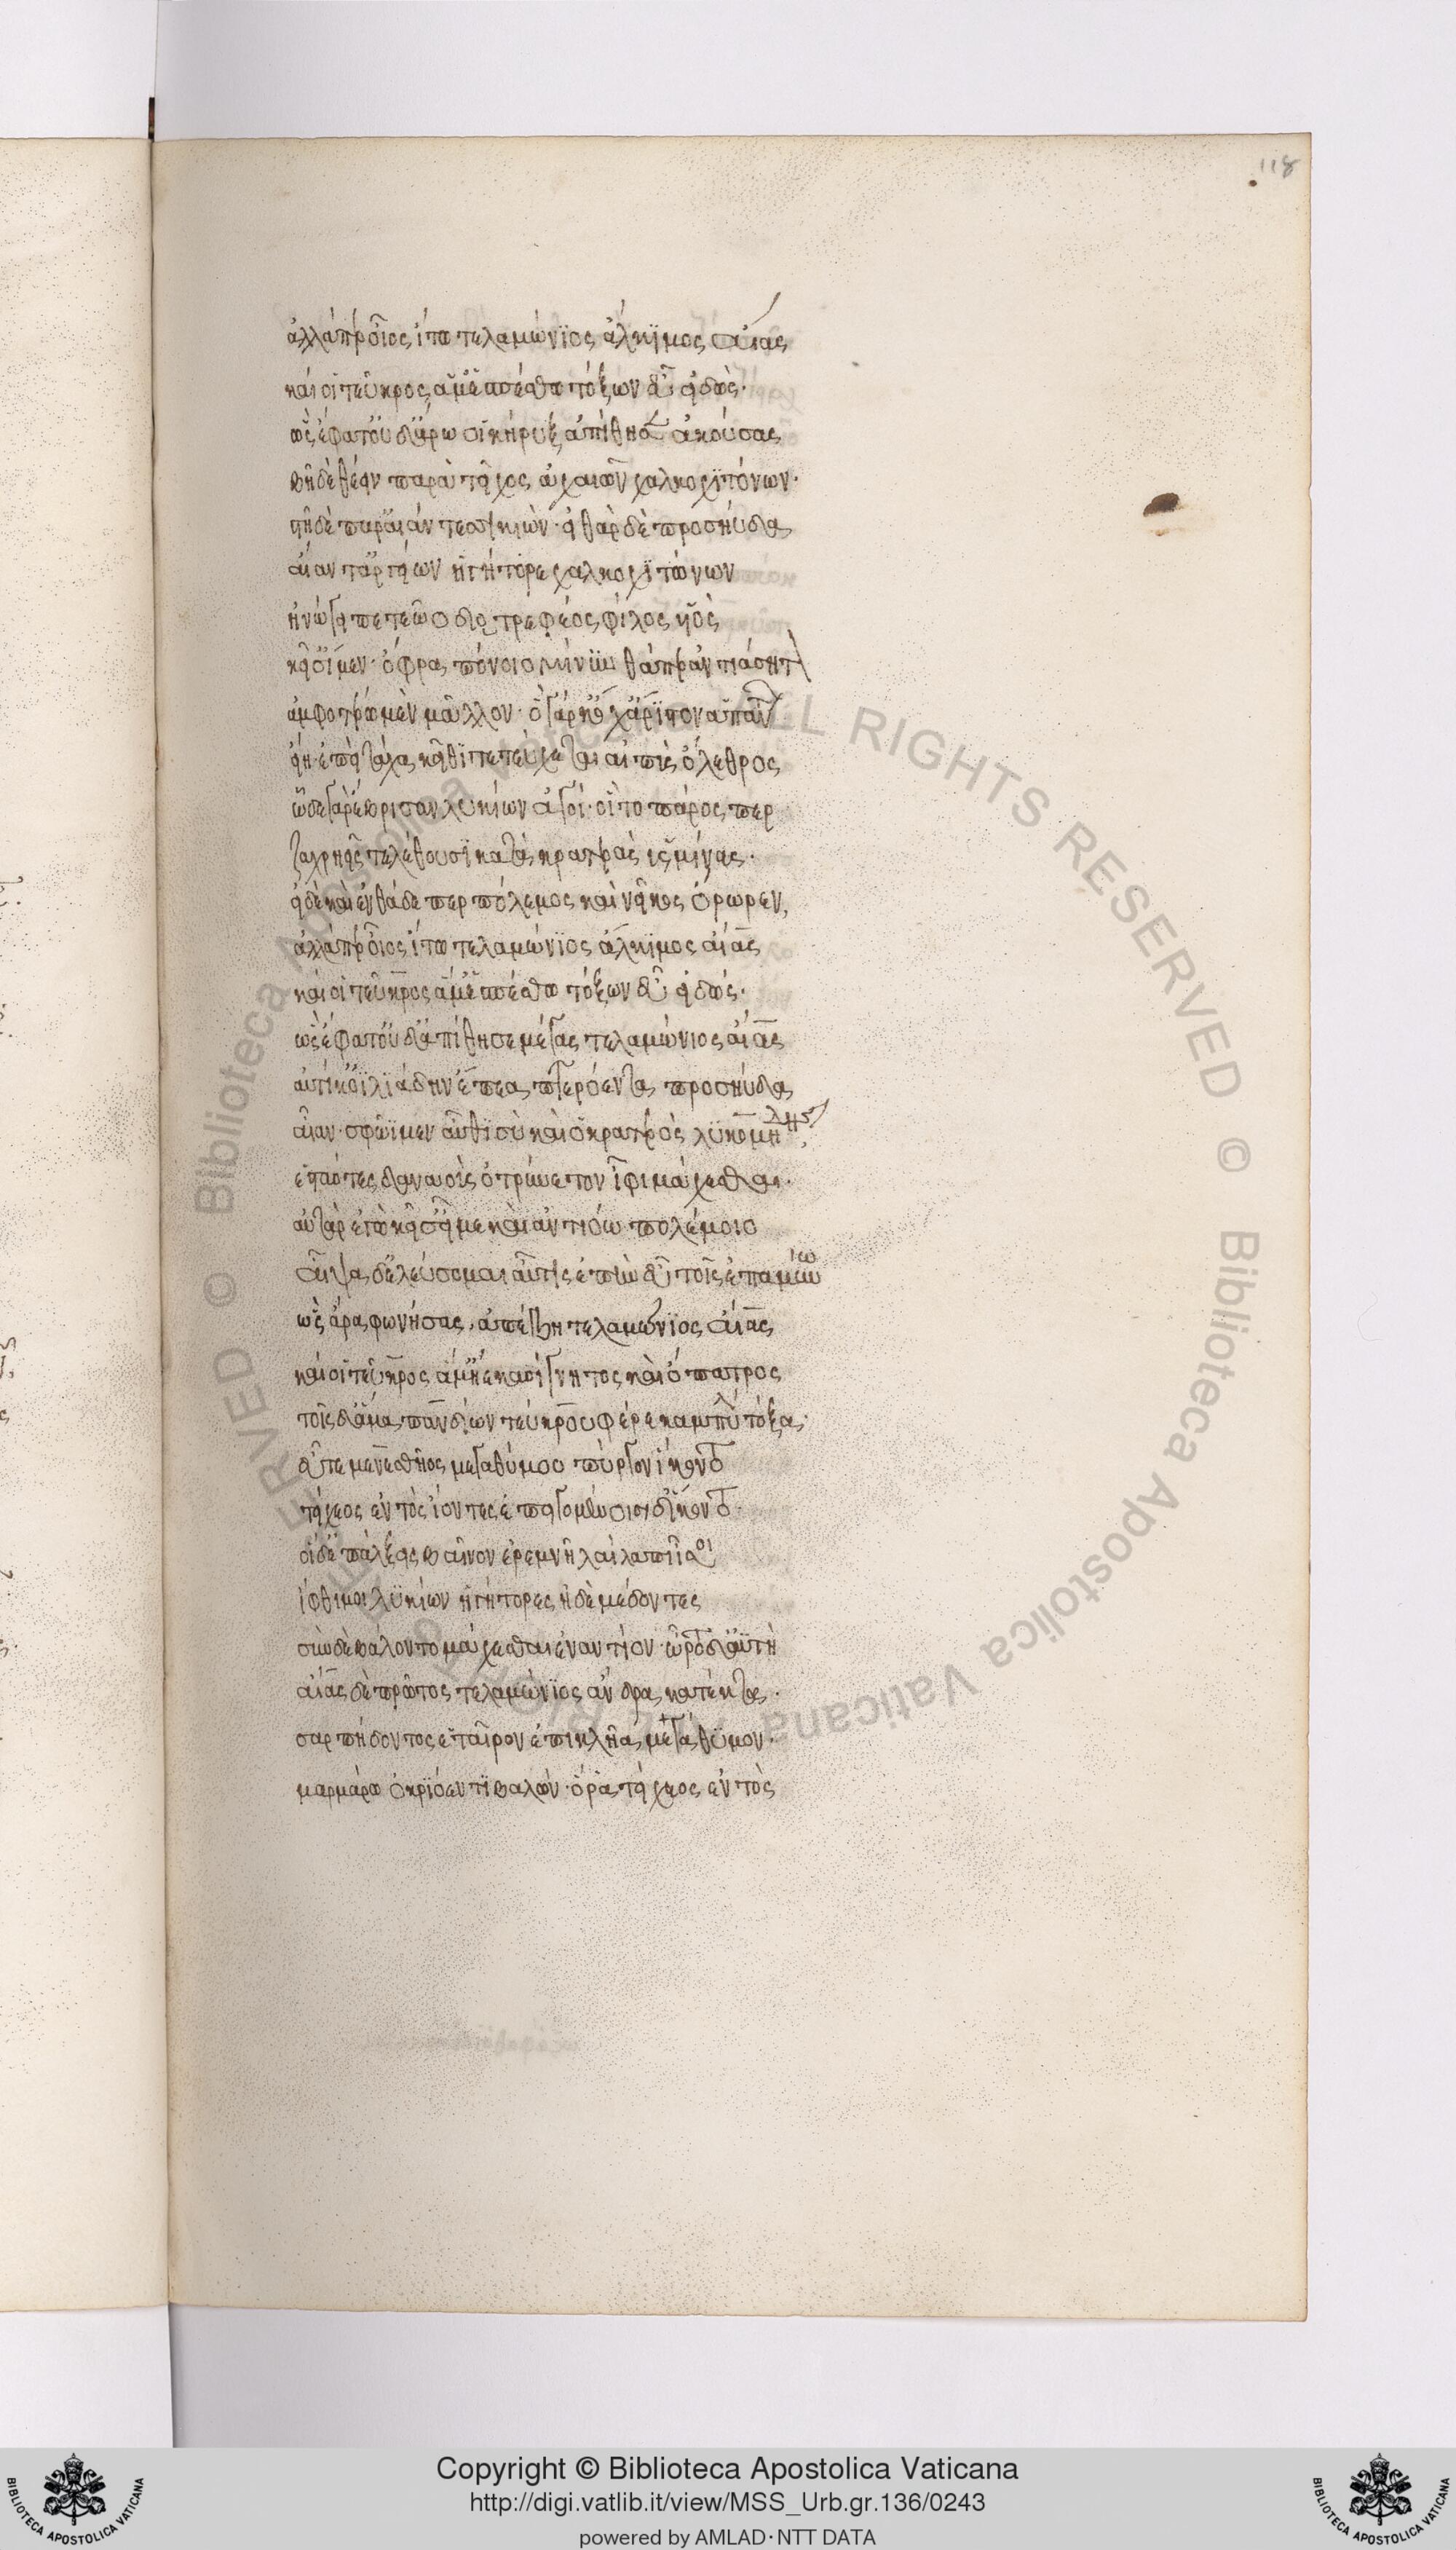 118
ἀλλάπερ οἶος ἴτω τελαμώνϊος ἄλκϊμος αἴας
καί οἱ τεῦκρος ἅμ᾽ ἐσπέσθω τόξων εὖ εἰδώς·
ὣς ἔφατ᾽ οὐδ᾽ ἄρα οἱ κήρυξ ἀπίθησεν ἀκούσας
βῆ δὲ θέειν παρὰ τεῖχος ἀχαιῶν χαλκοχϊτόνων·
στῆ δὲ παρ᾽ αἰάντεσσι κιών· εἶθαρ δὲ προσηύδα
αἴαντ᾽ ἀργείων ἡγήτορε χαλκοχϊτώνων
ἠνώγει πετεῶο διοτρεφέος φίλος υἱὸς
κεῖσ᾽ ἴμεν· ὄφρα πόνοιο μίνυνθά περ ἀντιάσητον
ἀμφοτέρω μὲν μᾶλλον· ὃ γάρ κ᾽ ὄχ᾽ ἄρϊστον ἁπάντων
εἴη· ἐπεὶ τάχα κεῖθϊ τετεύξεται αἰπὺς ὄλεθρος
ὧδε γὰρ ἔβρισαν λυκίων ἀγοί· οἳ τὸ πάρος περ
ζαχρηεῖς τελέθουσϊ κατὰ κρατερὰς ὑσμίνας·
εἰ δὲ καὶ ἐνθάδε περ πόλεμος καὶ νεῖκος ὄρωρεν,
ἀλλάπερ οἶος ἴτω τελαμώνϊος ἄλκϊμος αἴας
καί οἱ τεῦκρος ἅμ᾽ ἐσπέσθω τόξων εὖ εἰδώς·
ὣς ἔφατ᾽ οὐδ᾽ ἀπίθησε μέγας τελαμώνιος αἴας
αὐτίκ᾽ ὀϊλιάδην ἔπεα πτερόεντα προσηύδα
αἶαν· σφῶϊ μὲν αὖθϊ σὺ καὶ ὃ κρατερὸς λϋκομήδης,
ἑσταότες δαναοὺς ὀτρύνετον ἶφι μάχεσθαι·
αὐτὰρ ἐγὼ κεῖσ᾽ εἶμι καὶ ἀντιόω πολέμοιο
αἶψα δ᾽ ἐλεύσομαι αὖτις ἐπὴν εὖ τοῖς ἐπαμύνω
ὣς ἄρα φωνήσας, ἀπέβη τελαμώνϊος αἴας
καί οἱ τεῦκρος ἅμ᾽ ἤιε κασίγνητος καὶ ὄπατρος
τοῖς δ᾽ ἅμα πανδίων τεύκρου φέρε καμπύλα τόξα·
εὖτε μενεσθῆος μεγαθύμου πύργον ἵκοντο
τείχεος ἐντὸς ἰόντες ἐπειγομένοισι δ᾽ ἵκοντο·
οἱ δ᾽ ἐπάλξεις βαῖνον ἐρεμνῇ λαίλαπι ἶσοι
ἴφθιμοι λϋκίων ἡγήτορες ἠδὲ μέδοντες
σὺν δὲ βάλοντο μάχεσθαι ἐναντίον· ὦρτο δ᾽ ἀϋτή
αἴας δὲ πρῶτος τελαμώνϊος ἄνδρα κατέκτα·
σαρπήδοντος ἑταῖρον ἐπικλῆα μεγάθϋμον·
μαρμάρω ὀκρϊόεντϊ βαλών· ὅ ῥα τείχεος ἐντὸς
Copyright © Biblioteca Apostolica Vaticana
http://digi.vatlib.it/view/MSS_Urb.gr.136/0243
powered by AMLAD·NTT DATA